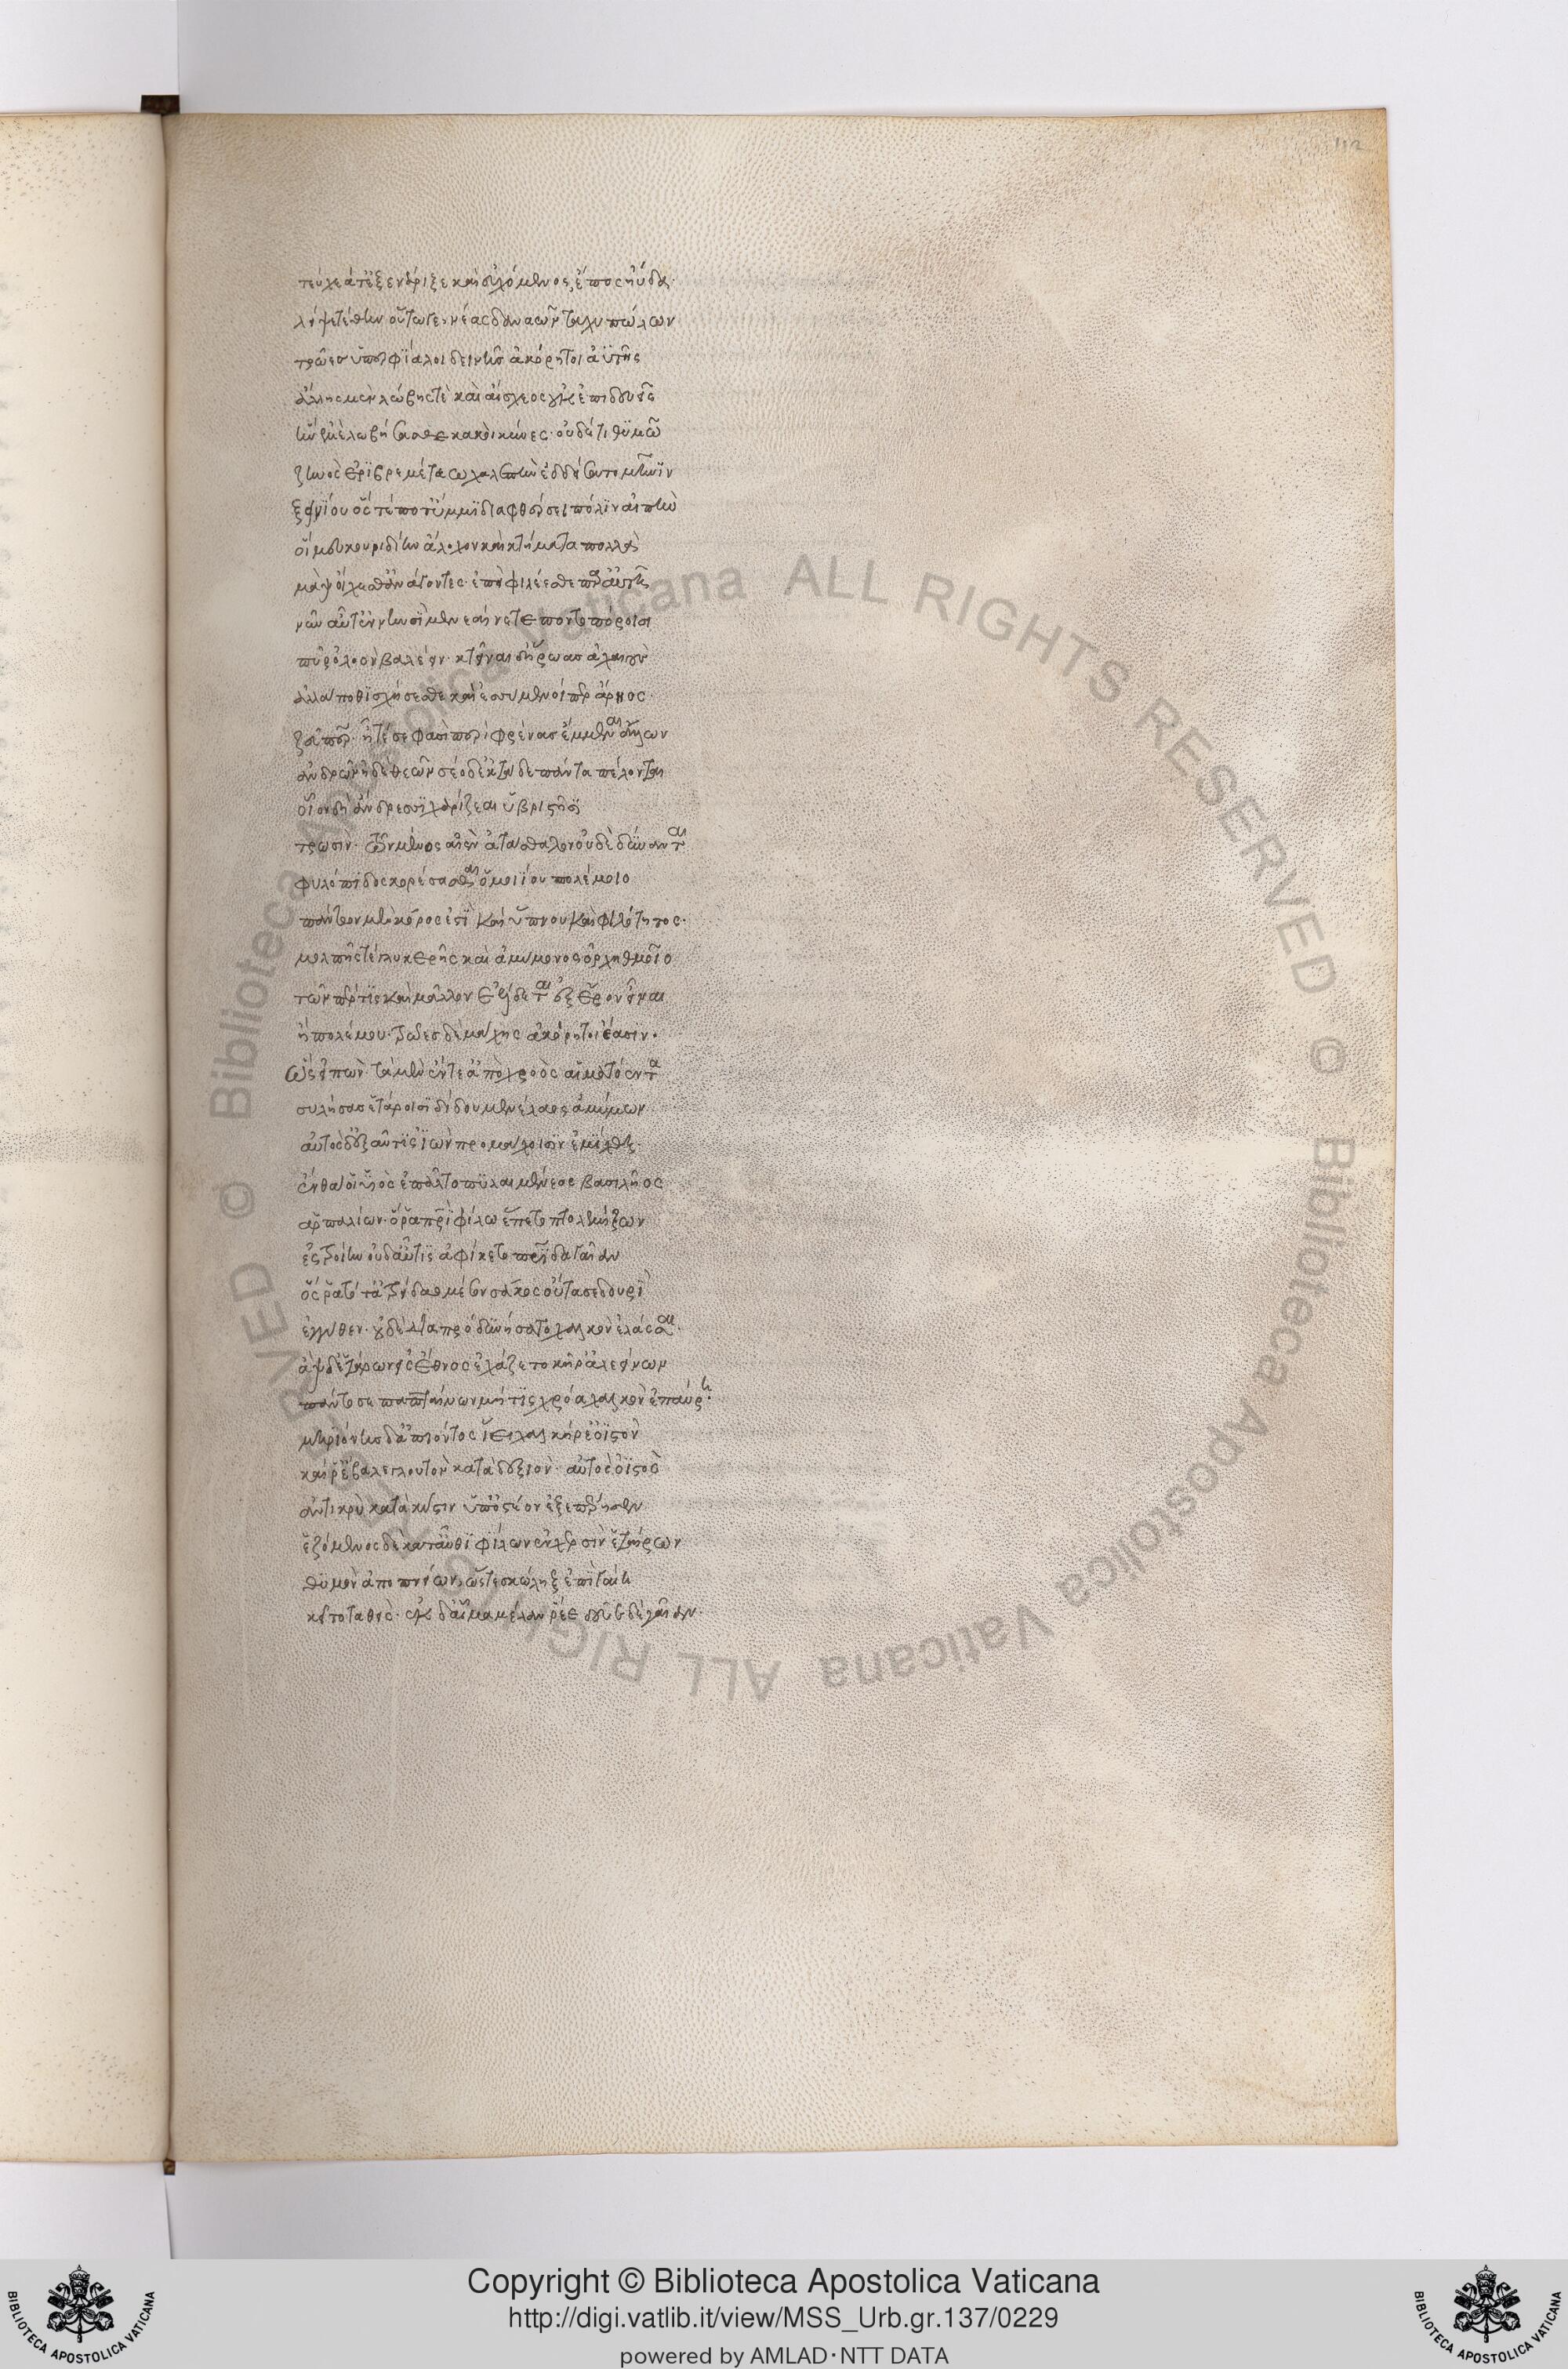 112
τεύχεά τ' ἐξενάριξε καὶ εὐχόμενος ἔπος ηὔδα·
λείψετέ θην οὕτω γε νέας δαναῶν ταχυπώλων
τρῶες ὑπερφίαλοι δεινῆς ἀκόρητοι ἀϋτῆς
ἄλλης μὲν λώβης τὲ καὶ αἴσχεος οὐκ ἐπιδευεῖς
ἣν ἐμὲ λωβήσασθε κακαὶ κύνες· οὐδέ τι θυμῶ
ζηνὸς ἐριβρεμέτεω χαλεπὴν ἐδδείσατε μῆνιν
ξεινίου ὅς τέ ποτ' ὔμμι διαφθέρσει πόλιν αἰπὴν
οἵ μευ κουριδίην ἄλοχον καὶ κτήματα πολλὰ
μὰψ οἴχεσθ' ἀνάγοντες· ἐπεὶ φιλέεσθε παρ' αὐτῆ
νῦν αὖτ' ἐν νηυσὶ μενεαίνετε ποντοπόροισι
πῦρ ὀλοὸν βαλέειν· κτεῖναι δ' ἥρωας ἀχαιοὺς
ἀλλά ποθι σχήσεσθε καὶ ἐσσύμενοί περ ἄρηος·
ζεῦ πάτερ· ἦ τέ σε φασὶ περὶ φρένας ἔμμεναι ἄλλων
ἀνδρῶν ἠδὲ θεῶν σέο δ' ἐκ τάδε πάντα πέλονται
οἷον δὴ ἄνδρεσσι χαρίζεαι ὑβριστῆσι
τρωσίν· τῶν μένος αἰὲν ἀτάσθαλον οὐδὲ δύνανται
φυλόπιδος κορέσασθαι ὁμοιίου πολέμοιο
πάντων μὲν κόρος ἐστὶ καὶ ὕπνου καὶ φιλότητος·
μολπῆς τὲ γλυκερῆς καὶ ἀμύμονος ὀρχηθμοῖο
τῶν πέρ τις καὶ μᾶλλον ἐέλδεται ἐξ ἔρον εἶναι
ἢ πολέμου· τρῶες δὲ μάχης ἀκόρητοι ἔασιν·
Ὣς εἰπὼν τὰ μὲν ἔντε' ἀπὸ χροὸς αἱματόεντα
συλήσας ἑτάροισι δίδου μενέλαος ἀμύμων
αὐτὸς δ' ἐξ αὖτις ἰὼν προμάχοισιν ἐμίχθη·
ἔνθα οἱ υἱὸς ἐπᾶλτο πυλαιμένεος βασιλῆος
ἁρπαλίων· ὅ ῥα πατρὶ φίλω ἕπετο πτολεμίξων
ἐς τροίην οὐδ' αὖτις ἀφίκετο πατρίδα γαῖαν
ὅς ῥα τότ' ἀτρείδαο μέσον σάκος οὔτασε δουρὶ
ἐγγύθεν· οὐδὲ διαπρὸ δυνήσατο χαλκὸν ἐλάσσαι·
ἂψ δ' ἑτάρων εἰς ἔθνος ἐχάζετο κῆρ' ἀλεείνων
πάντοσε παπταίνων μή τις χρόα χαλκὸν ἐπαύρη·
μηριόνης δ' ἀπιόντος ἵει χαλκήρε' ὀϊστὸν
καί ῥ' ἔβαλε γλουτὸν κατὰ δεξιόν· αὐτὸς ὀϊστὸς
ἀντικρὺ κατὰ κύστιν ὑπ' ὀστέον ἐξεπέρησεν
ἑζόμενος δὲ κατ' αὖθι φίλων ἐν χερσὶν ἑταίρων
θυμὸν ἀποπνείων· ὥς τε σκώληξ ἐπὶ γαίη
κεῖτο ταθεὶς· ἐκ δ' αἷμα μέλαν ῥέε δεῦε δὲ γαῖαν·
Copyright © Biblioteca Apostolica Vaticana
http://digi.vatlib.it/view/MSS_Urb.gr.137/0229
powered by AMLAD·NTT DATA
BIBLIOTECA APOSTOLICA VATICANA
BIBLIOTECA APOSTOLICA VATICANA
© Biblioteca Apostolica Vaticana ALL RIGHTS RESERVED
© Biblioteca Apostolica Vaticana ALL RIGHTS RESERVED